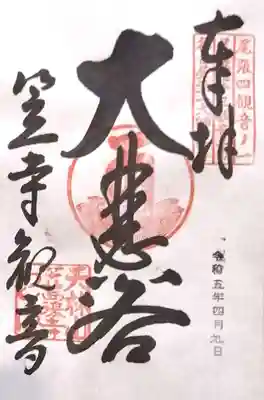 奉拝
尾張四観音ノ一
大悲閣
令和五年四月九日
笠寺観音
天林山笠覆寺